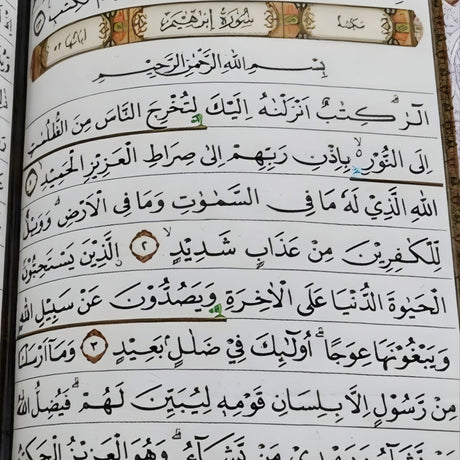 مكية سورة إبرهيم اياتها ٥٢
بِسْمِ اللهِ الرَّحْمٰنِ الرَّحِيْمِ
الٓرٰ ۗ كِتٰبٌ اَنْزَلْنٰهُ اِلَيْكَ لِتُخْرِجَ النَّاسَ مِنَ الظُّلُمٰتِ
اِلَى النُّوْرِ ەۙ بِاِذْنِ رَبِّهِمْ اِلٰى صِرَاطِ الْعَزِيْزِ الْحَمِيْدِۙ ١
اللهِ الَّذِيْ لَهٗ مَا فِى السَّمٰوٰتِ وَمَا فِى الْاَرْضِۗ وَوَيْلٌ
لِّلْكٰفِرِيْنَ مِنْ عَذَابٍ شَدِيْدٍۙ ٢ الَّذِيْنَ يَسْتَحِبُّوْنَ
الْحَيٰوةَ الدُّنْيَا عَلَى الْاٰخِرَةِ وَيَصُدُّوْنَ عَنْ سَبِيْلِ اللهِ
وَيَبْغُوْنَهَا عِوَجًاۗ اُولٰۤىِٕكَ فِيْ ضَلٰلٍ بَعِيْدٍ ٣ وَمَآ اَرْسَلْنَا
مِنْ رَّسُوْلٍ اِلَّا بِلِسَانِ قَوْمِهٖ لِيُبَيِّنَ لَهُمْۗ فَيُضِلُّ اللهُ
مَنْ يَّشَاۤءُ وَيَهْدِيْ مَنْ يَّشَاۤءُۗ وَهُوَ الْعَزِيْزُ الْحَكِيْمُ